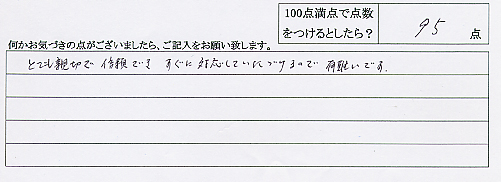 100点満点で点数
をつけるとしたら？
95 点
何かお気づきの点がございましたら、ご記入をお願い致します。
とても親切で 信頼でき すぐに対応していただけるので 有難いです。